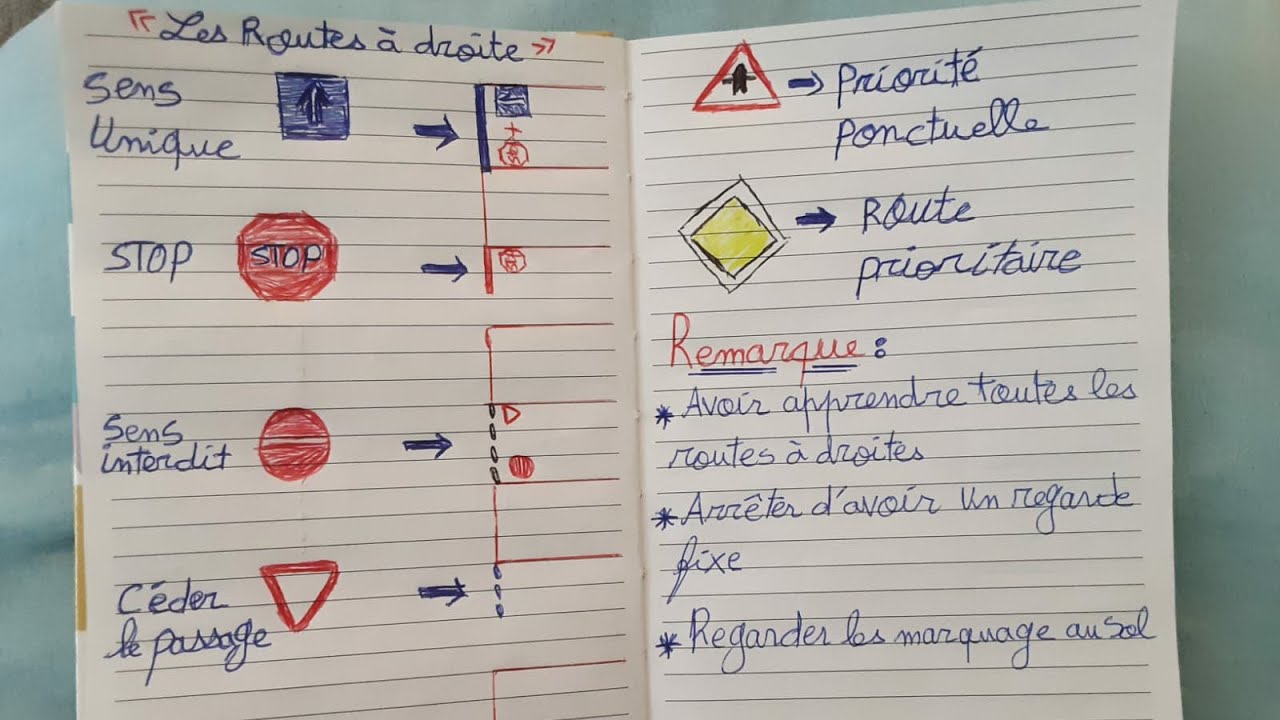 « Les Routes à droite »
Sens
Unique
STOP
STOP
Sens
interdit
Céder
le passage
Priorité
ponctuelle
Route
prioritaire
Remarque :
* Avoir apprendre toutes les
routes à droites
* Arrêter d'avoir un regarde
fixe
* Regarder les marquage au sol